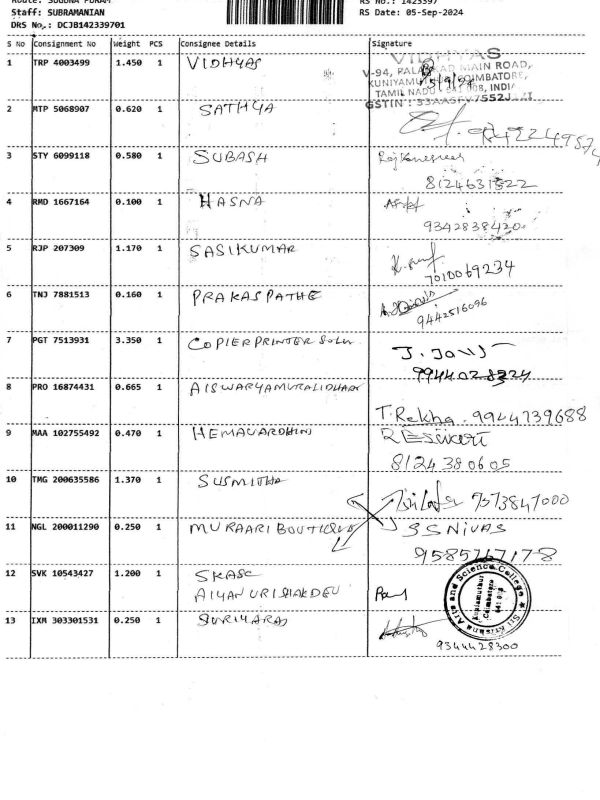 Route: SUGUNA PURAM
RS No.: 1423397
Staff: SUBRAMANIAN
RS Date: 05-Sep-2024
DRS No.: DCJB142339701
S No Consignment No Weight PCS Consignee Details Signature
1 TRP 4003499 1.450 1 VIDHYAS
VIDHYAS
V-94, PALAKKAD MAIN ROAD,
KUNIYAMUTHUR, COIMBATORE,
TAMIL NADU 641 008, INDIA
GSTIN: 33AASFV7552J
2 MTP 5068907 0.620 1 SATHYA
3 STY 6099118 0.580 1 SUBASH
8124631522
4 RMD 1667164 0.100 1 HASNA
9342838420
5 RJP 207309 1.170 1 SASIKUMAR
7010069234
6 TNJ 7881513 0.160 1 PRAKASPATHE
9442516096
7 PGT 7513931 3.350 1 COPIERPRINTER SOLU
J. JONS
9944028224
8 PRO 16874431 0.665 1 AISWARYAMURALIDHARA
T. Rekha. 9944739688
9 MAA 102755492 0.470 1 HEMAVARDHIN
8124380605
10 TMG 200635586 1.370 1 SUSMITHA
7373847000
11 NGL 200011290 0.250 1 MURAARI BOUTIQUE
SSNIVAS
9585767178
12 SVK 10543427 1.200 1 SKASC
AIYAN URISHAKDEV
Sri Krishna Arts and Science College
Kuniamuthur
Coimbatore
641 008
13 IXM 303301531 0.250 1 SURIYARAJ
9344428300